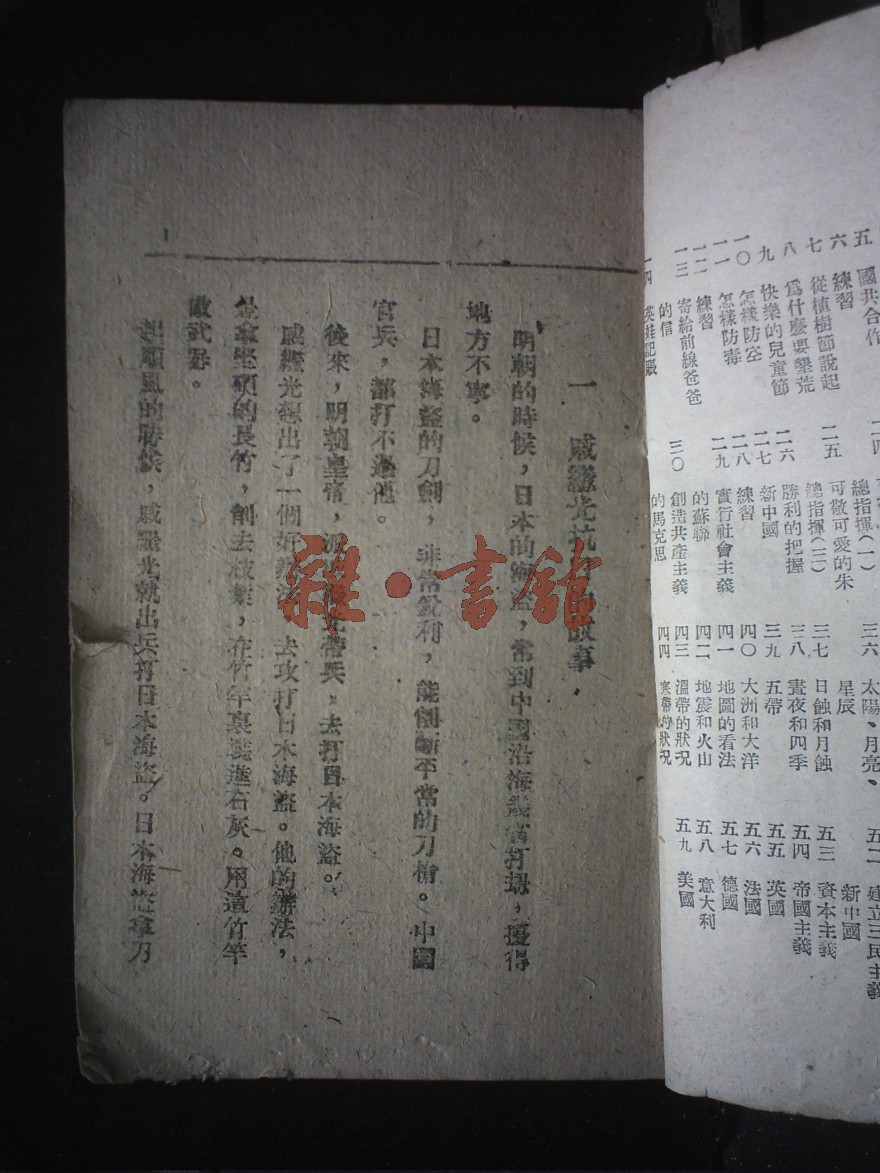 五 國共合作
六 練習
七 從植樹節說起
八 爲什麼要墾荒
九 快樂的兒童節
一〇 怎樣防空
一一 怎樣防毒
一二 練習
一三 寄給前線爸爸
的信
一四 英娃記賬
二四
總指揮(一)
二五 可敬可愛的朱
總指揮(二)
二六 勝利的把握
二七 新中國
二八 練習
二九 實行社會主義
的蘇聯
三〇 創造共產主義
的馬克思
三六 太陽、月亮、
星辰
三七 日蝕和月蝕
三八 晝夜和四季
三九 五帶
四〇 大洲和大洋
四一 地圖的看法
四二 地震和火山
四三 溫帶的狀況
四四 寒帶的狀況
五二 建立三民主義
新中國
五三 資本主義
五四 帝國主義
五五 英國
五六 法國
五七 德國
五八 意大利
五九 美國
一 戚繼光抗日的故事
明朝的時候，日本的海盜，常到中國沿海幾省打刼，擾得
地方不寧。
日本海盜的刀劍，非常銳利，能削斷平常的刀槍。中國
官兵，都打不過他。
後來，明朝皇帝，派戚繼光帶兵，去打日本海盜。
戚繼光想出了一個好辦法，去攻打日本海盜。他的辦法，
是拿堅硬的長竹，削去枝葉，在竹竿裏裝進石灰。用這竹竿
做武器。
起順風的時候，戚繼光就出兵打日本海盜。日本海盜拿刀
雜·書館